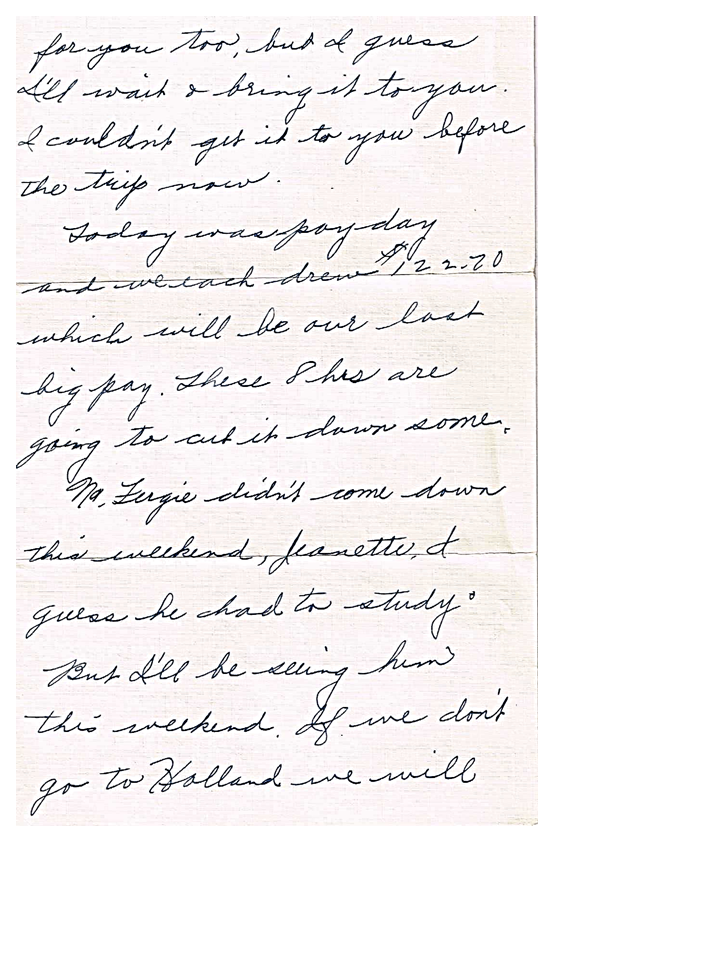 for you too, but I guess
I'll wait & bring it to you.
I couldn't get it to you before
the trip now.
Today was payday
and we each drew $122.70
which will be our last
big pay. These 8 hrs are
going to cut it down some.
No, Fergie didn't come down
this weekend, Jeanette, I
guess he had to study.
But I'll be seeing him
this weekend. If we don't
go to Holland we will